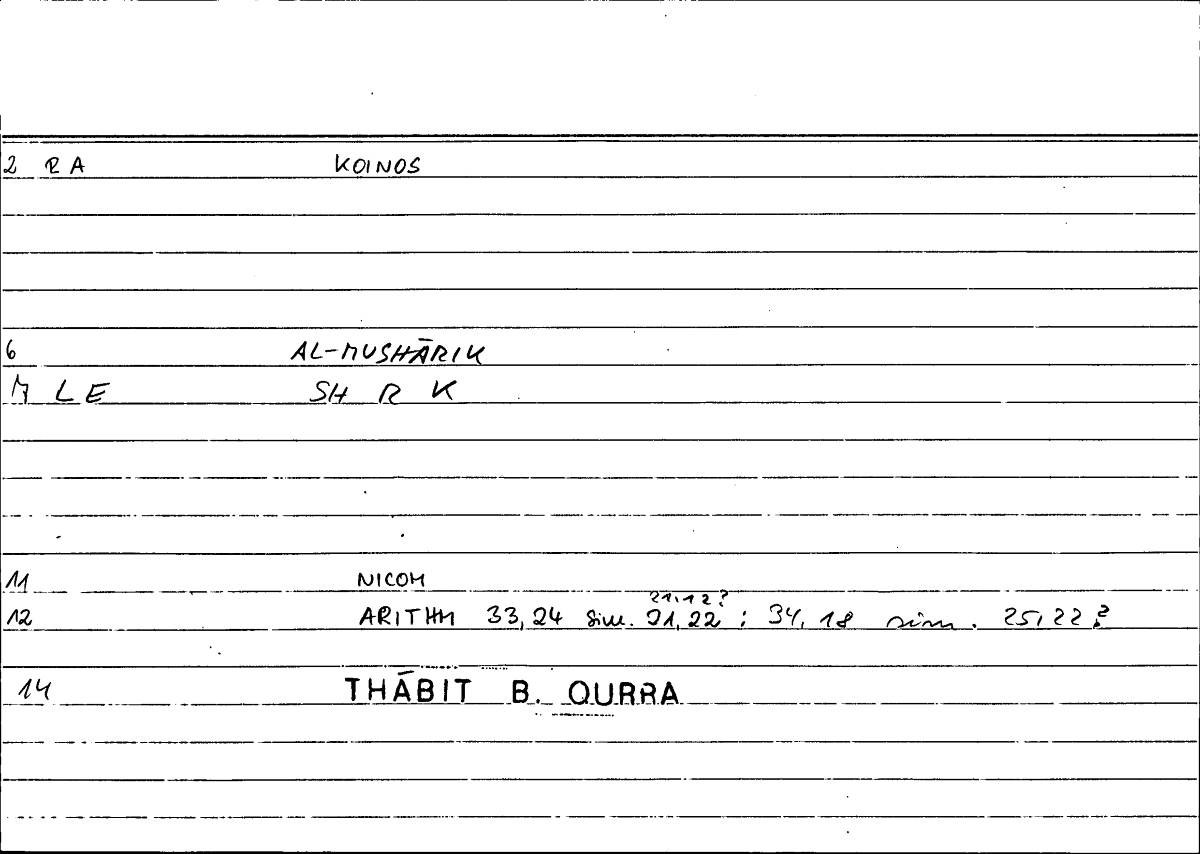 2 RA KOINOS
6 AL-MUSHĀRIK
M LE SH R K
11 NICOM
21,12?
12 ARITHM 33,24 sim. 21,22 ; 34,18 sim. 25,22?
14 THĀBIT B. QURRA